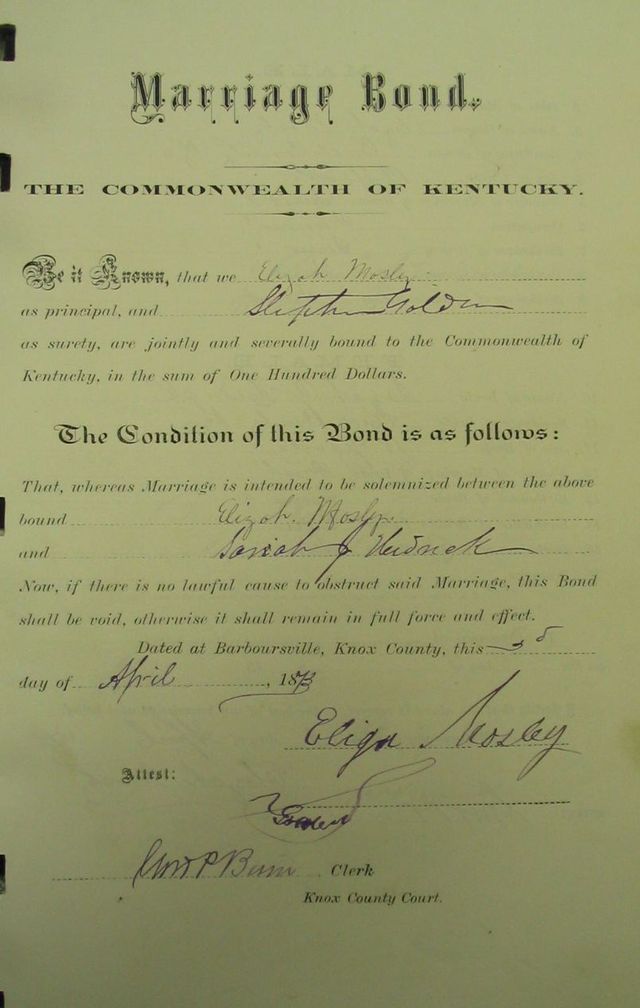 Marriage Bond.
THE COMMONWEALTH OF KENTUCKY.
Be it Known, that we Elizah Mosley
as principal, and Stephen Golden
as surety, are jointly and severally bound to the Commonwealth of
Kentucky, in the sum of One Hundred Dollars.
The Condition of this Bond is as follows:
That, whereas Marriage is intended to be solemnized between the above
bound Elizah Mosly
and Sariah J
Now, if there is no lawful cause to obstruct said Marriage, this Bond
shall be void, otherwise it shall remain in full force and effect.
Dated at Barboursville, Knox County, this
day of April, 1873
Eliga Mosley
Attest:
Clerk
Knox County Court.